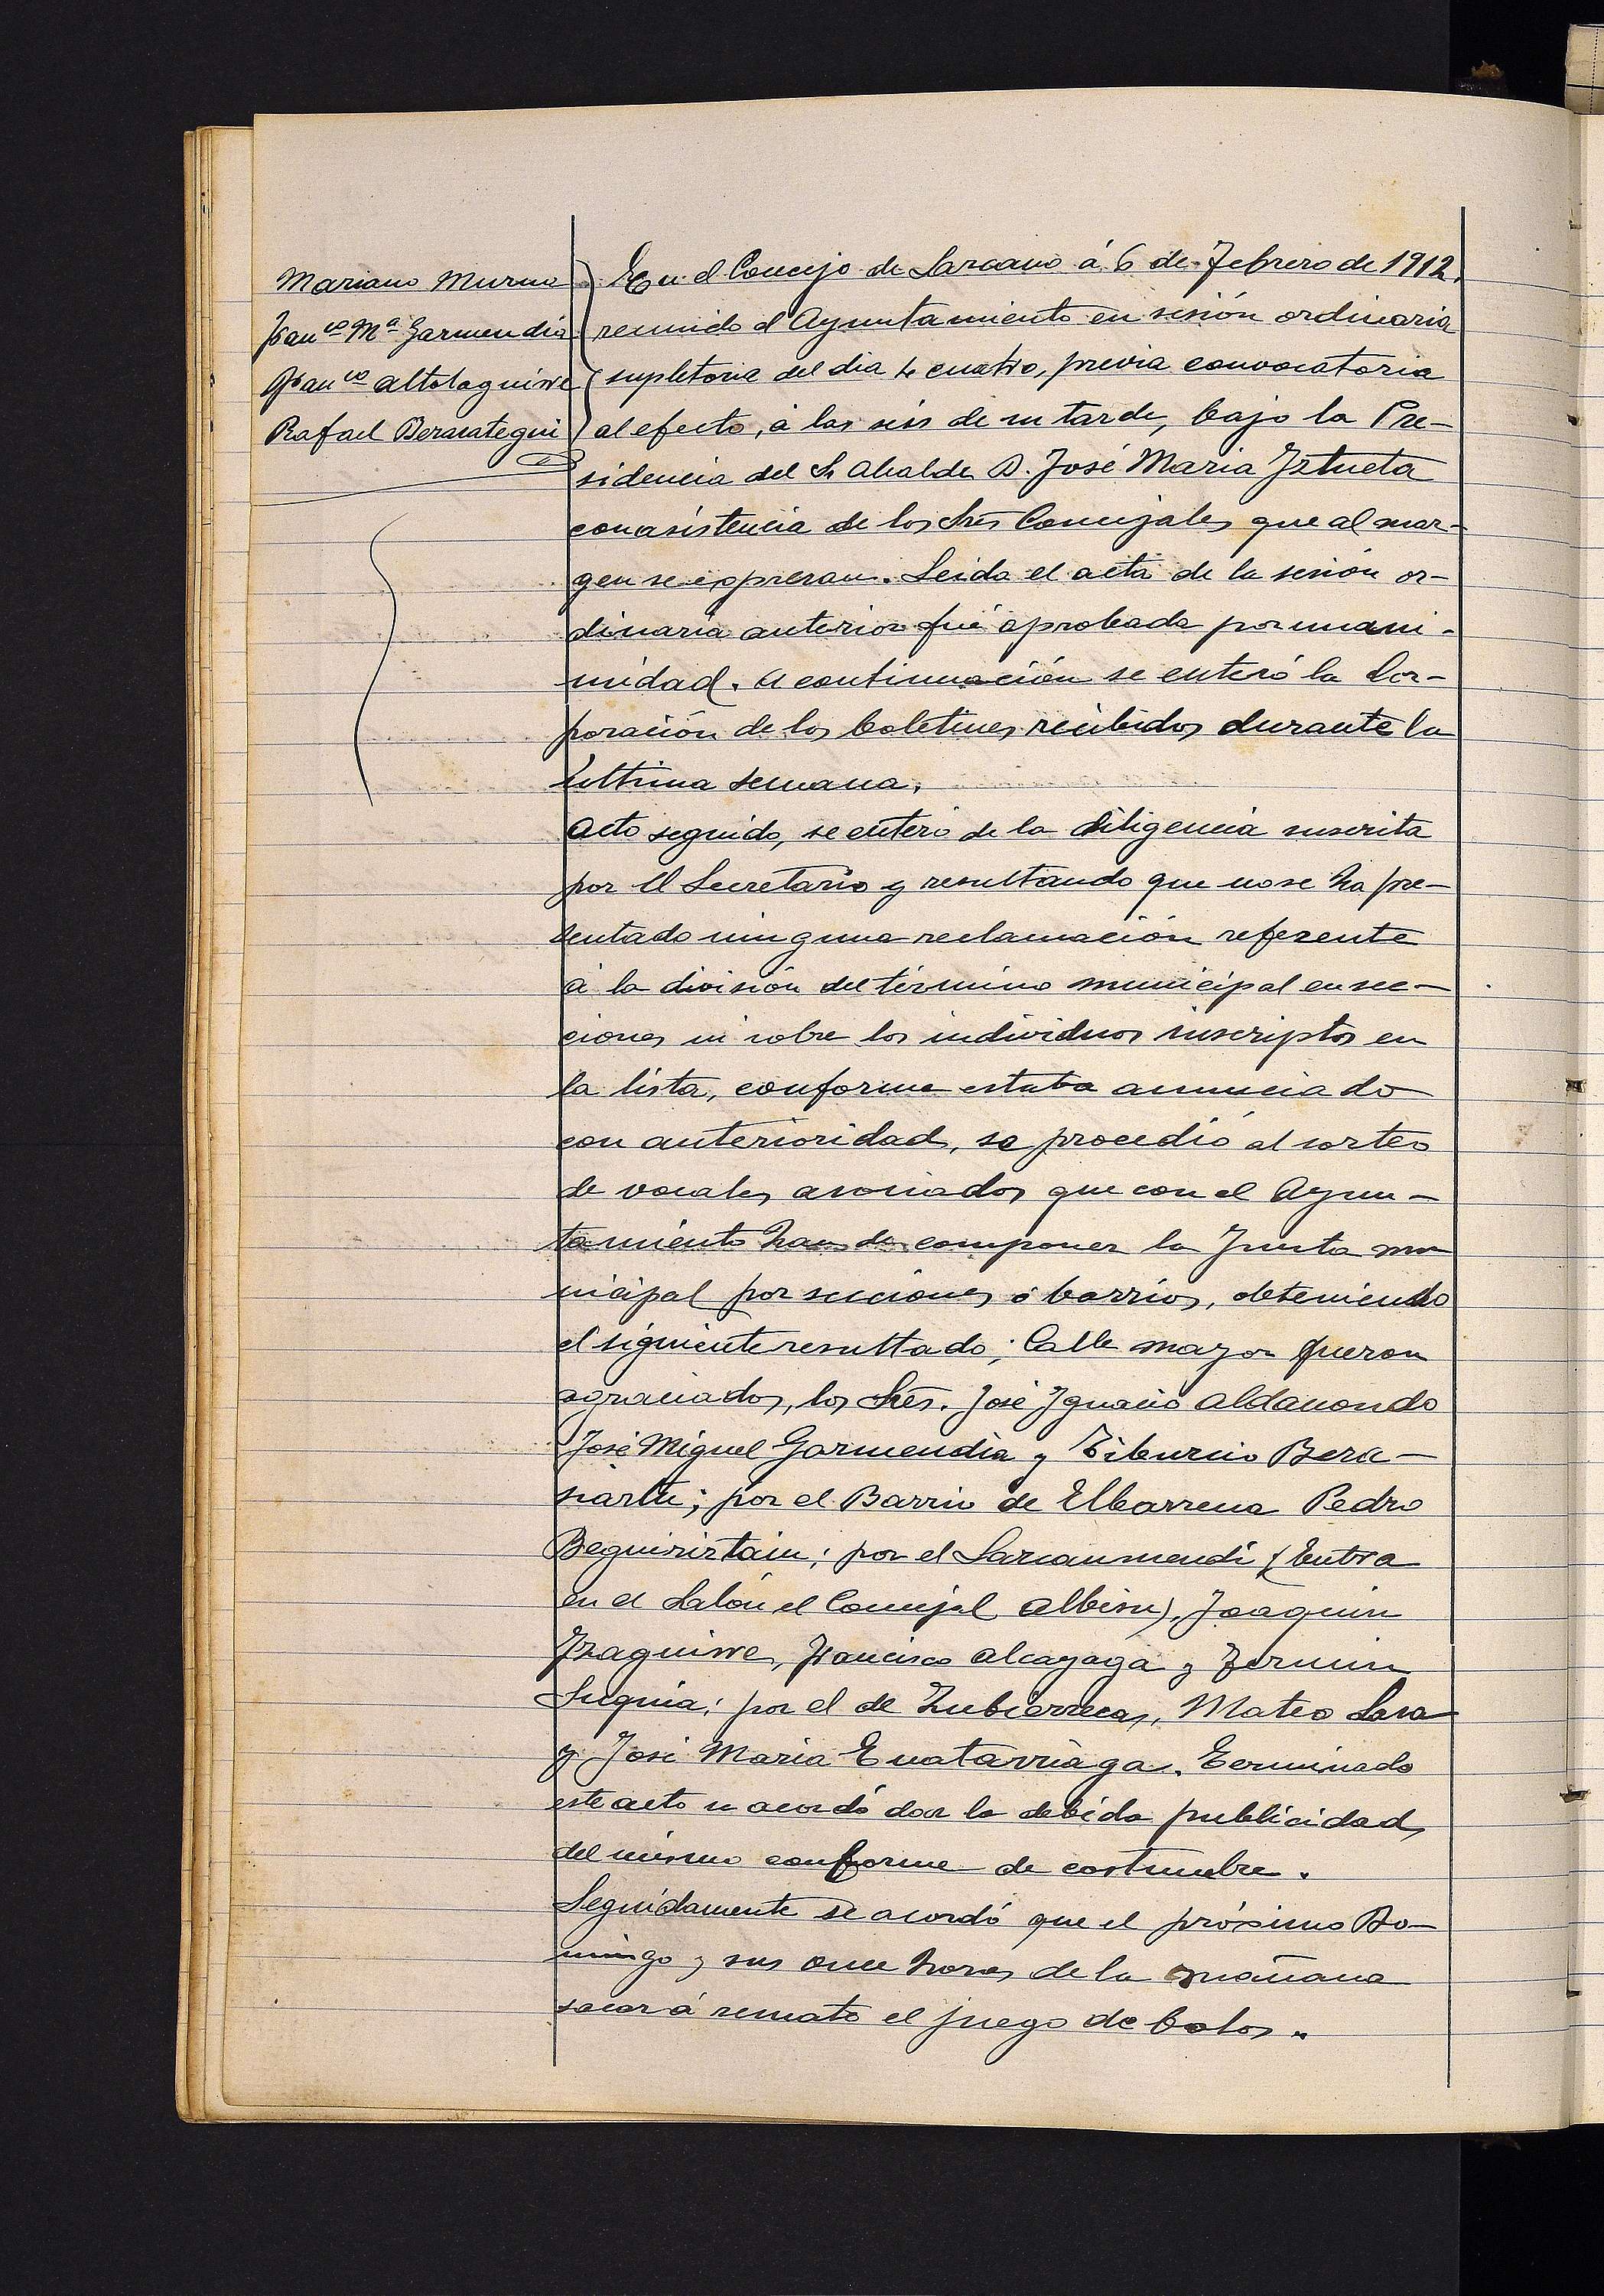 Mariano Murua
Franco Ma Garmendia
Franco Altolaguirre
Rafael Berasategui
En el Concejo de Lazcano á 6 de Febrero de 1912.
reunido el Ayuntamiento en sesión ordinaria
supletoria del dia 4 cuatro, previa convocatoria
al efecto, á las seis de su tarde, bajo la Pre-
sidencia del Sr Alcalde D. José Maria Iztueta
con asistencia de los Sres Concejales que al mar-
gen se expresan. Leida el acta de la sesión or-
dinaria anterior fué aprobada por unani-
midad. A continuación se enteró la Cor-
poración de los boletines recibidos durante la
última semana.
Acto seguido, se enteró de la diligencia suscrita
por el Secretario y resultando que no se ha pre-
sentado ninguna reclamación referente
á la división del término municipal en sec-
ciones ni sobre los individuos inscriptos en
la lista, conforme estaba anunciado
con anterioridad, se procedió al sorteo
de vocales asociados que con el Ayun-
tamiento han de componer la Junta mu
nicipal por secciones ó barrios, obteniendo
el siguiente resultado; Calle mayor fueron
agraciados, los Sres. José Ignacio Aldanondo
José Miguel Garmendia y Tiburcio Bera-
siartu; por el Barrio de Elbarrena Pedro
Beguiristain; por el Lazcanmendi (Entra
en el Salón el Concejal Albisu), Joaquin
Izaguirre, Francisco Alcayaga y Fermin
Suquia; por el de Zubierrecas, Mateo Lasa
y José Maria Enatarriaga. Terminado
este acto se acordó dar la debida publicidad
del mismo conforme de costumbre.
Seguidamente se acordó que el próximo Do-
mingo y sus once horas de la mañana
sacar á remate el juego de bolos.